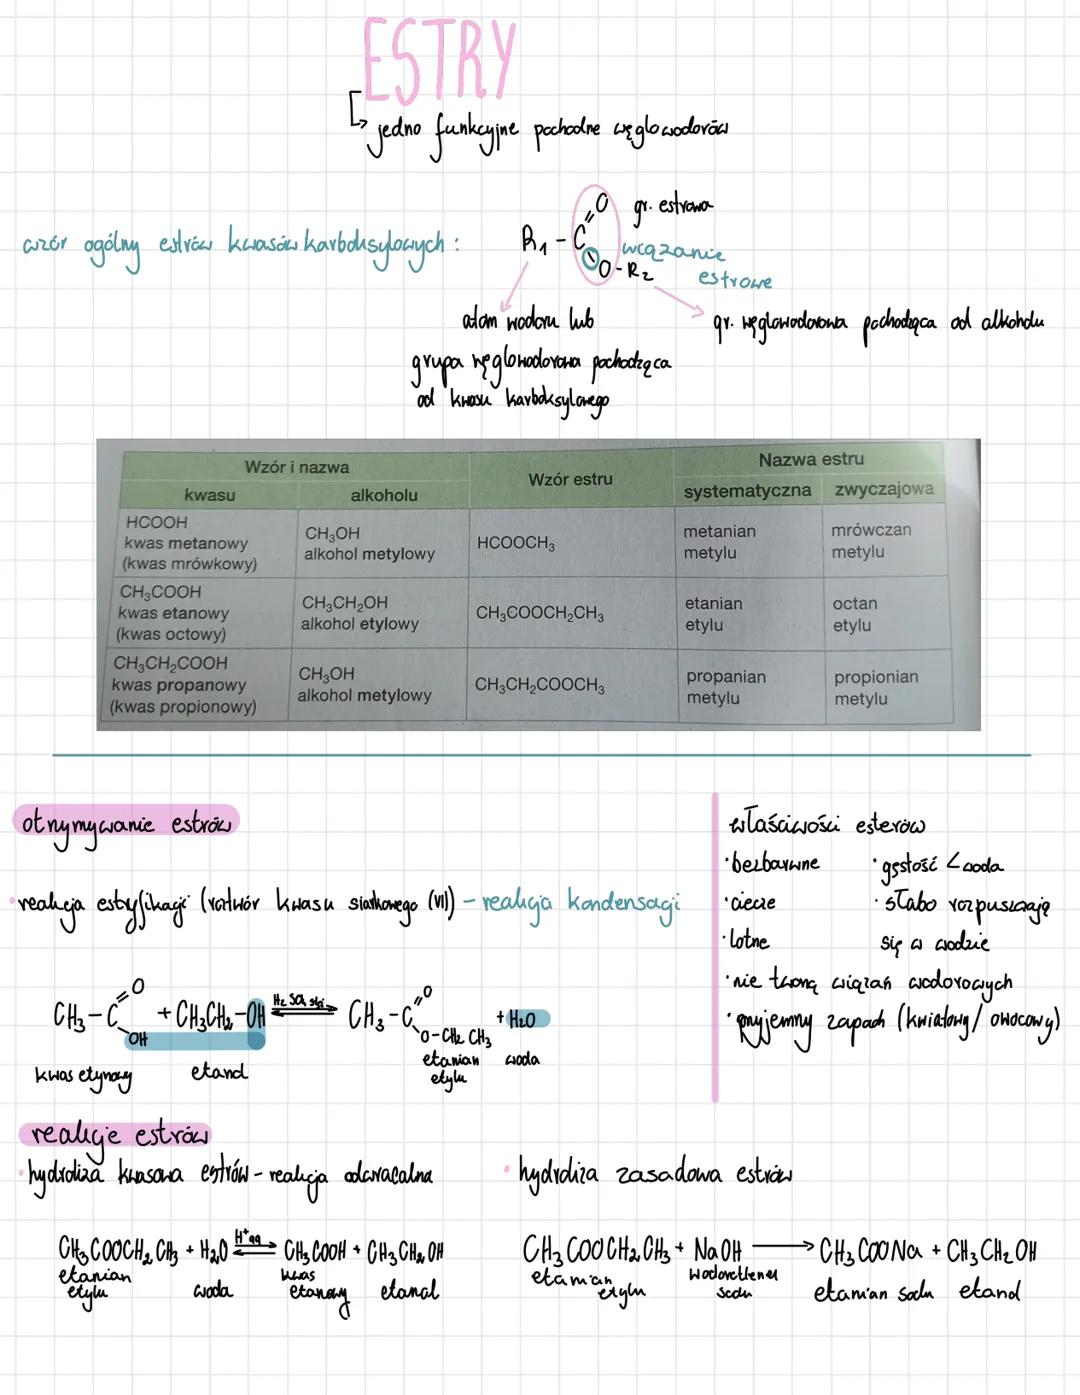 ESTRY
jedno funkcyjne pochodne węglowodorów
wzór ogólny estrów kwasów karboksylowych :
R₁ - C
O
O - R₂
gr. estrowa
wiązanie
estrowe
atom wodoru lub
grupa węglowodorowa pochodząca
od kwasu karboksylowego
gr. węglowodorowa pochodząca od alkoholu
Wzór i nazwa
Wzór estru
Nazwa estru
kwasu
alkoholu
systematyczna
zwyczajowa
HCOOH
kwas metanowy
(kwas mrówkowy)
CH₃OH
alkohol metylowy
HCOOCH₃
metanian
metylu
mrówczan
metylu
CH₃COOH
kwas etanowy
(kwas octowy)
CH₃CH₂OH
alkohol etylowy
CH₃COOCH₂CH₃
etanian
etylu
octan
etylu
CH₃CH₂COOH
kwas propanowy
(kwas propionowy)
CH₃OH
alkohol metylowy
CH₃CH₂COOCH₃
propanian
metylu
propionian
metylu
otrzymywanie estrów
• reakcja estryfikacji (roztwór kwasu siarkowego (VI)) - reakcja kondensacji
CH₃ - C
O
OH
+ CH₃CH₂ - OH
H₂SO₄ stęż.
CH₃ - C
O
O - CH₂ CH₃
+ H₂O
kwas etynowy
etanol
etanian
etylu
woda
właściwości esterów
• bezbarwne
• gęstość < woda
• ciecze
• słabo rozpuszczają
się w wodzie
• lotne
• nie tworzą wiązań wodorowych
• przyjemny zapach (kwiatowy / owocowy)
reakcje estrów
• hydroliza kwasowa estrów - reakcja odwracalna
CH₃COOCH₂CH₃ + H₂O
H⁺aq
CH₃COOH + CH₃CH₂OH
etanian
etylu
woda
kwas
etanowy
etanol
• hydroliza zasadowa estrów
CH₃COOCH₂CH₃ + NaOH → CH₃COONa + CH₃CH₂OH
etanian
etylu
wodorotlenek
sodu
etanian sodu
etanol